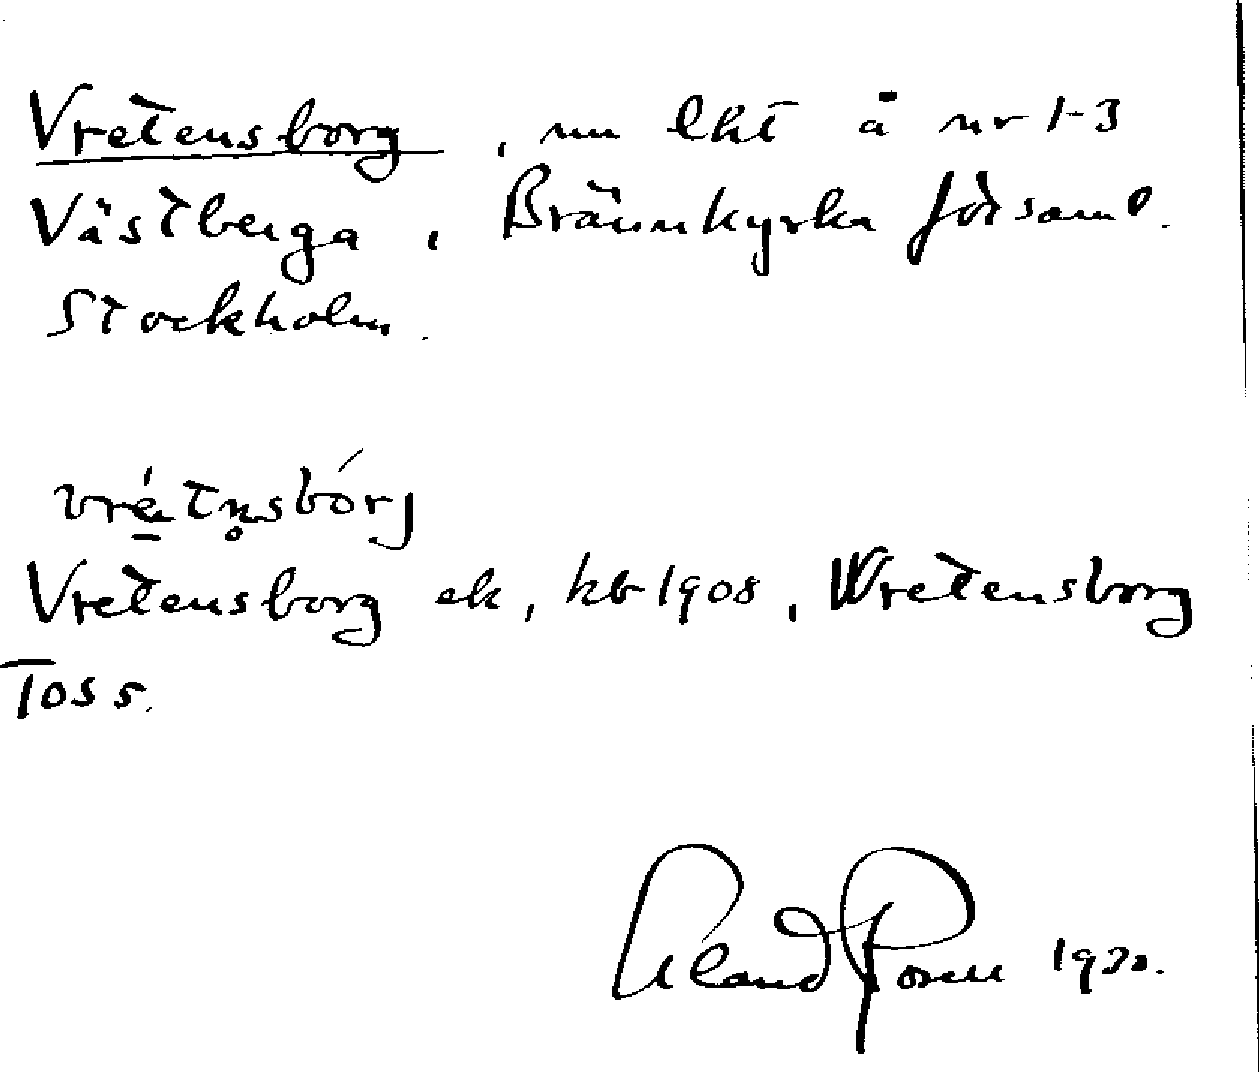 Vretensborg, nu lht å nr 1-3
Västberga, Brännkyrka förs
Stockholm.
vrétn̥sbórj
Vretensborg ek, kb 1908, Wretensborg
Toss.
Rosell 1920.